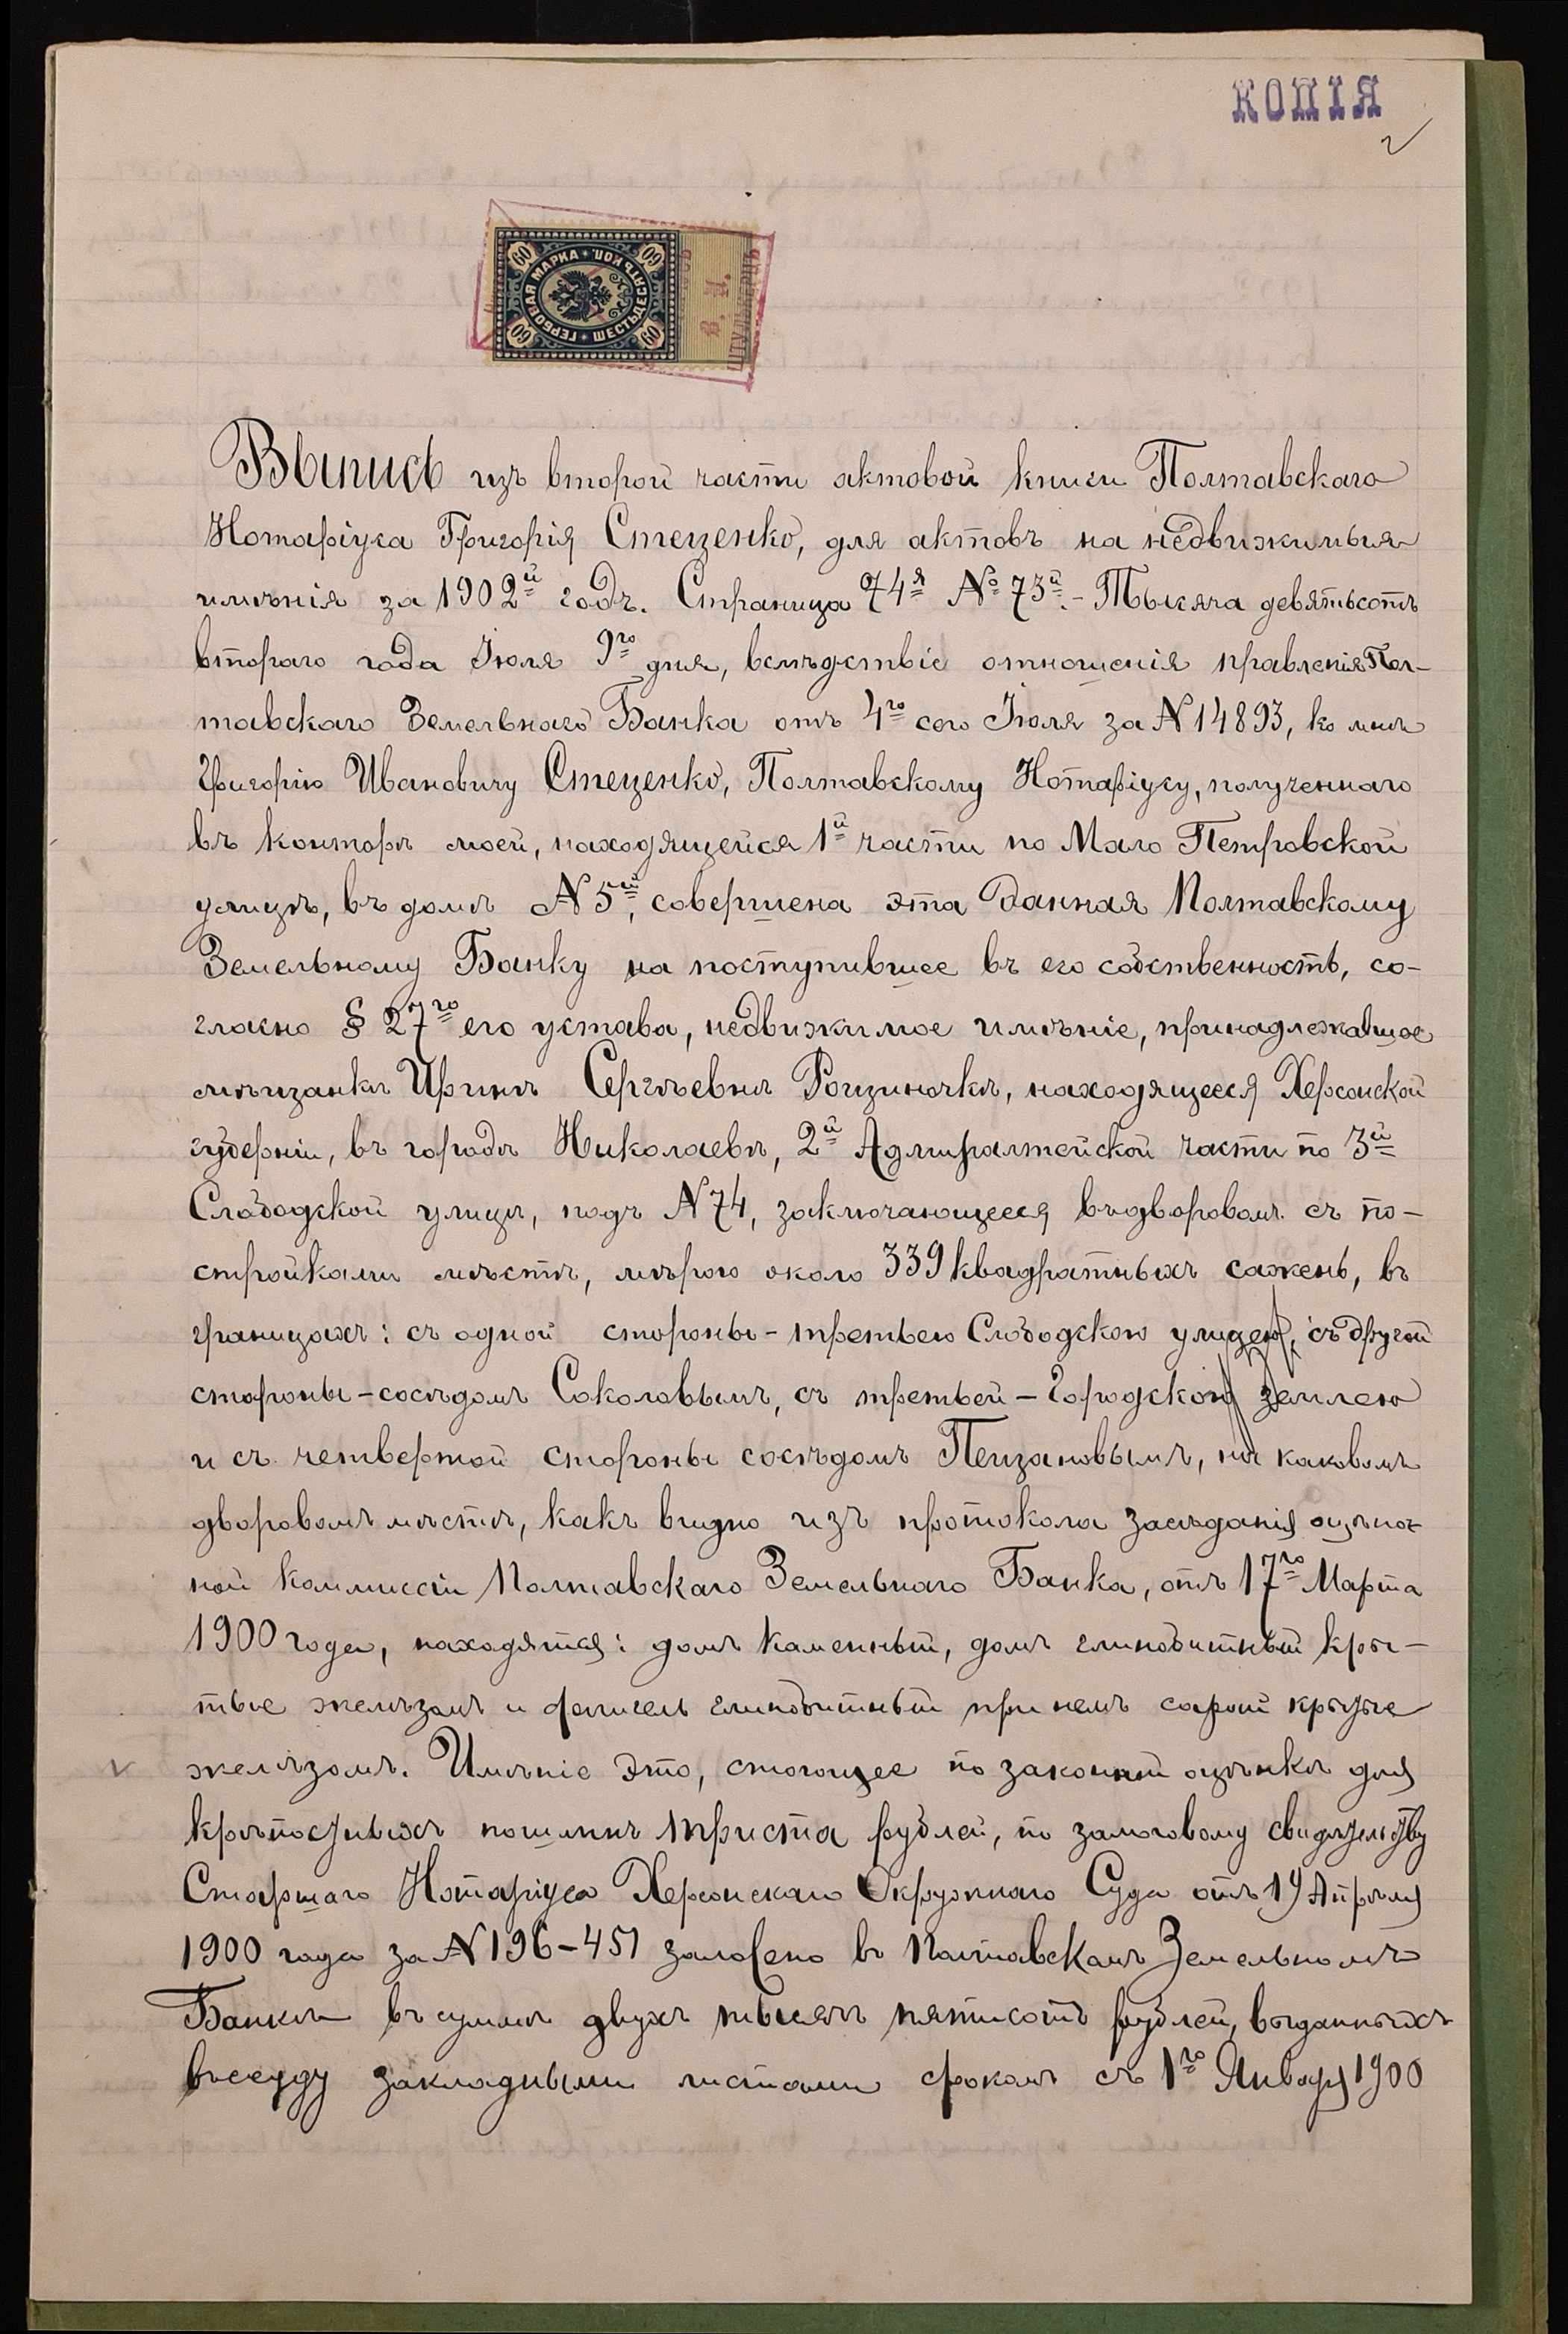 КОПІЯ
2
ГЕРБОВАЯ МАРКА ШЕСТЬДЕСЯТЪ КОП.
60 60 60 60
В. И.
Выпись изъ второй части актовой книги Полтавскаго
Нотаріуса Григорія Стеценко, для актовъ на недвижимыя
имѣнія за 1902й годъ. Страница 74я № 73й. - Тысяча девятьсотъ
второго года Іюля 9го дня, вслѣдствіе отношенія правленія Пол-
тавскаго Земельнаго Банка отъ 4го сего Іюля за N 14893, ко мнѣ
Григорію Ивановичу Стеценко, Полтавскому Нотаріусу, полученнаго
въ конторѣ моей, находящейся 1й части по Мало Петровской
улицѣ, въ домѣ N 5й, совершена эта данная Полтавскому
Земельному Банку на поступившее въ его собственность, со-
гласно § 27го его устава, недвижимое имѣніе, принадлежавшое
мѣщанкѣ Иринѣ Сергѣевнѣ Рощиночкѣ, находящееся Херсонской
губерніи, въ городѣ Николаевѣ, 2й Адмиралтейской части по 3й
Слободской улицѣ, подъ N 74, заключающееся въ дворовомъ съ по-
стройками мѣстѣ, мѣрою около 339 квадратныхъ сажень, въ
границахъ: съ одной стороны - третьею Слободскою улицею, съ другой
стороны - сосѣдомъ Соколовымъ, съ третьей - Городскою землею
и съ четвертой стороны сосѣдомъ Пещановымъ, на каковомъ
дворовомъ мѣстѣ, какъ видно изъ протокола засѣданія оцѣноч-
ной коммиссіи Полтавскаго Земельнаго Банка, отъ 17го Марта
1900 года, находятся: домъ каменный, домъ глинобитный кры-
тые желѣзомъ и флигель глинобитный при немъ сарай крытые
желѣзомъ. Имѣніе это, стоющее по законной оцѣнкѣ для
крѣпостныхъ пошлинъ триста рублей, по залоговому свидѣтельству
Старшаго Нотаріуса Херсонскаго Окружнаго Суда отъ 19 Апрѣля
1900 года за N 196-451 заложено въ Полтавскомъ Земельномъ
Банкѣ въ суммѣ двухъ тысячъ пятисотъ рублей, выданныхъ
въ ссуду закладными листами срокомъ съ 1го Января 1900